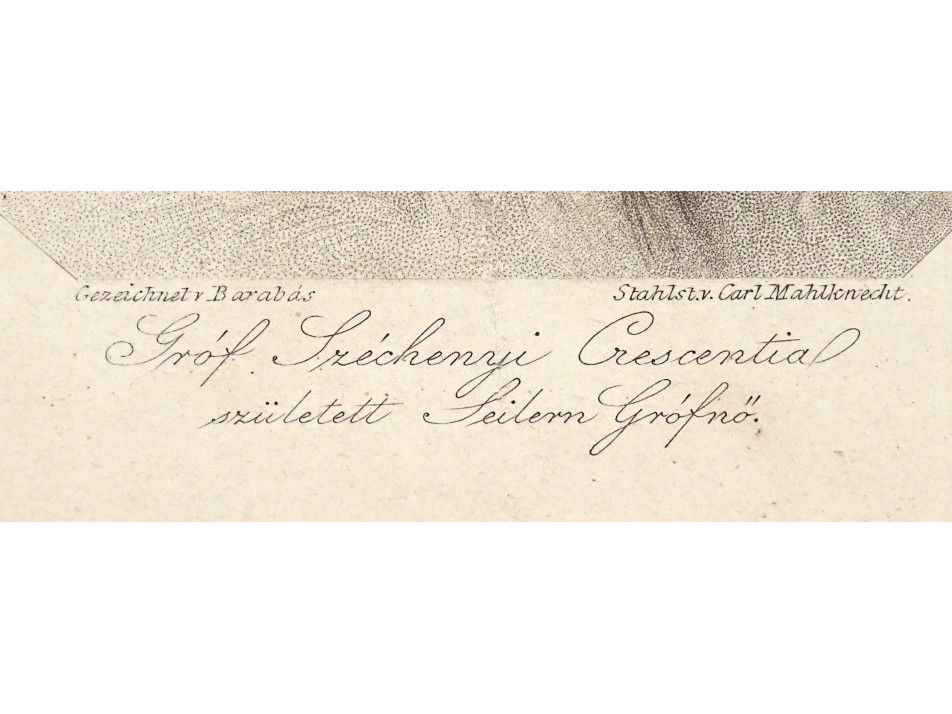 Gezeichnet v Barabás
Stahlst. v. Carl Mahlknecht.
Gróf Széchenyi Crescentia
született Seilern Grófnő.